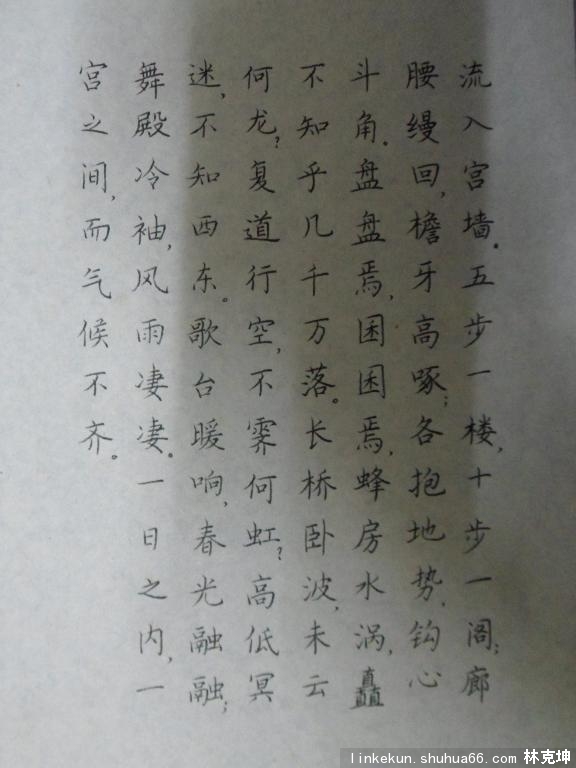 流入宫墙。五步一楼，十步一阁；廊
腰缦回，檐牙高啄；各抱地势，钩心
斗角。盘盘焉，困困焉，蜂房水涡，矗
不知乎几千万落。长桥卧波，未云
何龙？复道行空，不霁何虹？高低冥
迷，不知西东。歌台暖响，春光融融；
舞殿冷袖，风雨凄凄。一日之内，一
宫之间，而气候不齐。
linkekun.shuhua66.com 林克坤